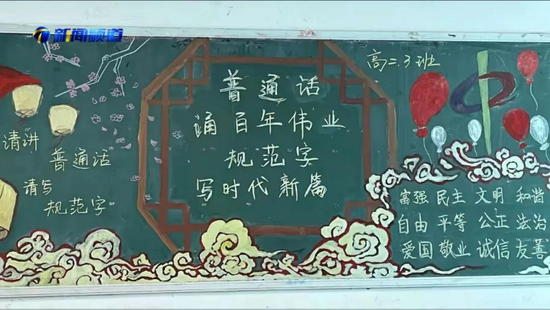 新闻频道
请讲
普通话
请写
规范字
普通话
诵百年伟业
规范字
写时代新篇
高二.3班
中
富强 民主 文明 和谐
自由 平等 公正 法治
爱国 敬业 诚信 友善